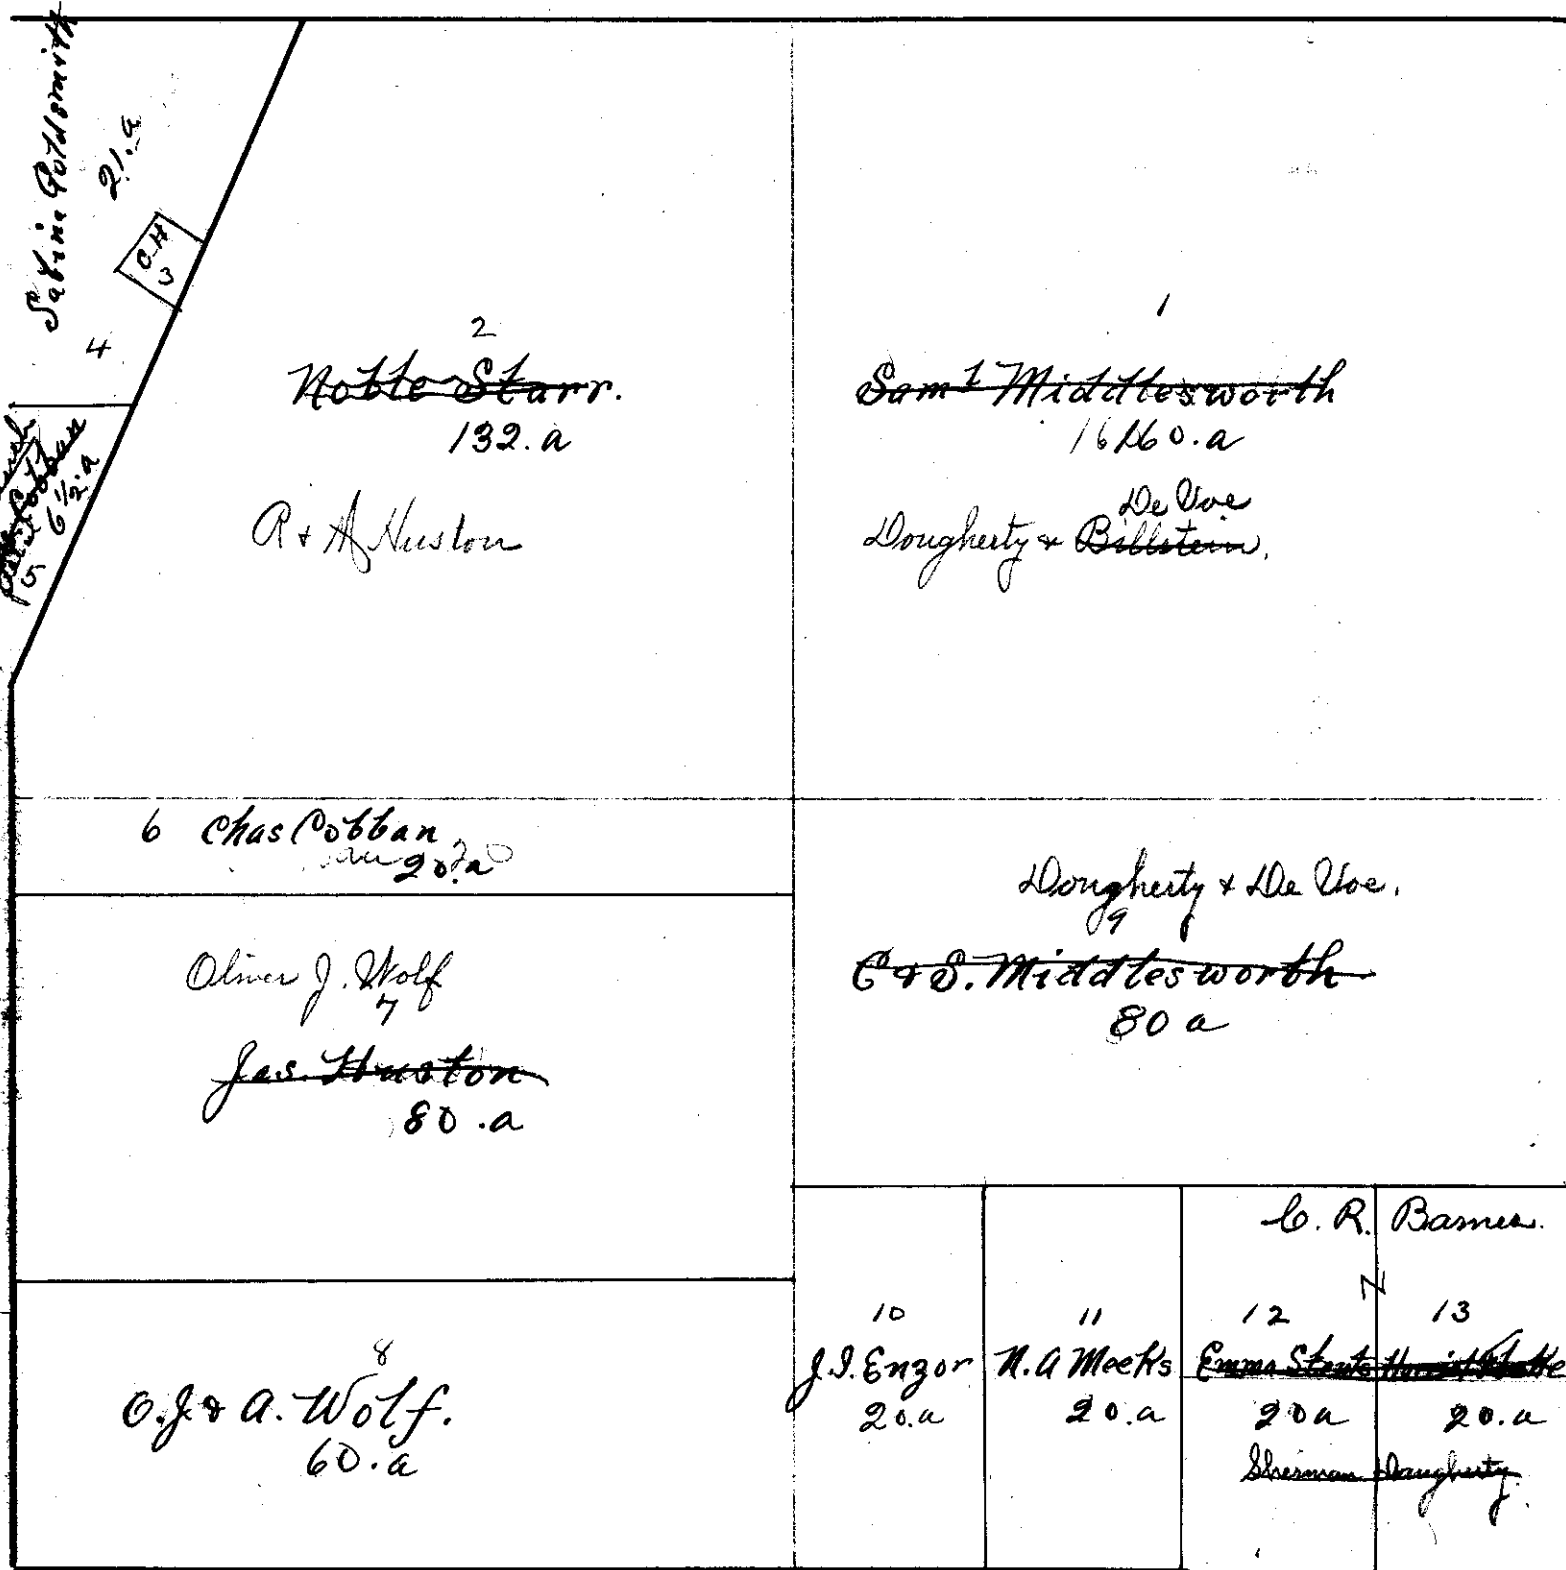 Sabina Goldsmith
21.a
C.H
3
4
Cobban
6½.a
5
2
Noble Starr.
132.a
R & A Huston
1
Saml Middlesworth
160.a
De Voe
Dougherty & Billstein.
6 Chas Cobban
20.a
Oliver J. Wolf
7
Jas. Huston
80.a
Dougherty & De Voe.
9
C & S. Middlesworth
80 a
8
O.J & A. Wolf.
60.a
10
J.I. Enzor
20.a
11
N.A Meeks
20.a
C. R. Barnes.
Z
12
Emma Stouts
20a
13
20.a
Sherman Daugherty.